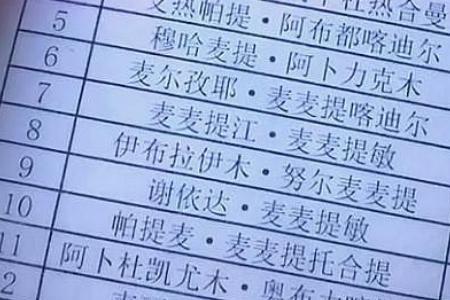 杜热合曼
热帕提·阿布都喀迪尔
5 穆哈麦提·阿卜力克木
6 麦尔孜耶·麦麦提喀迪尔
7 麦麦提江·麦麦提敏
8 伊布拉伊木·努尔麦麦提
9 谢依达·麦麦提敏
10 帕提麦·麦麦提托合提
11 阿卜杜凯尤木·奥布力
2